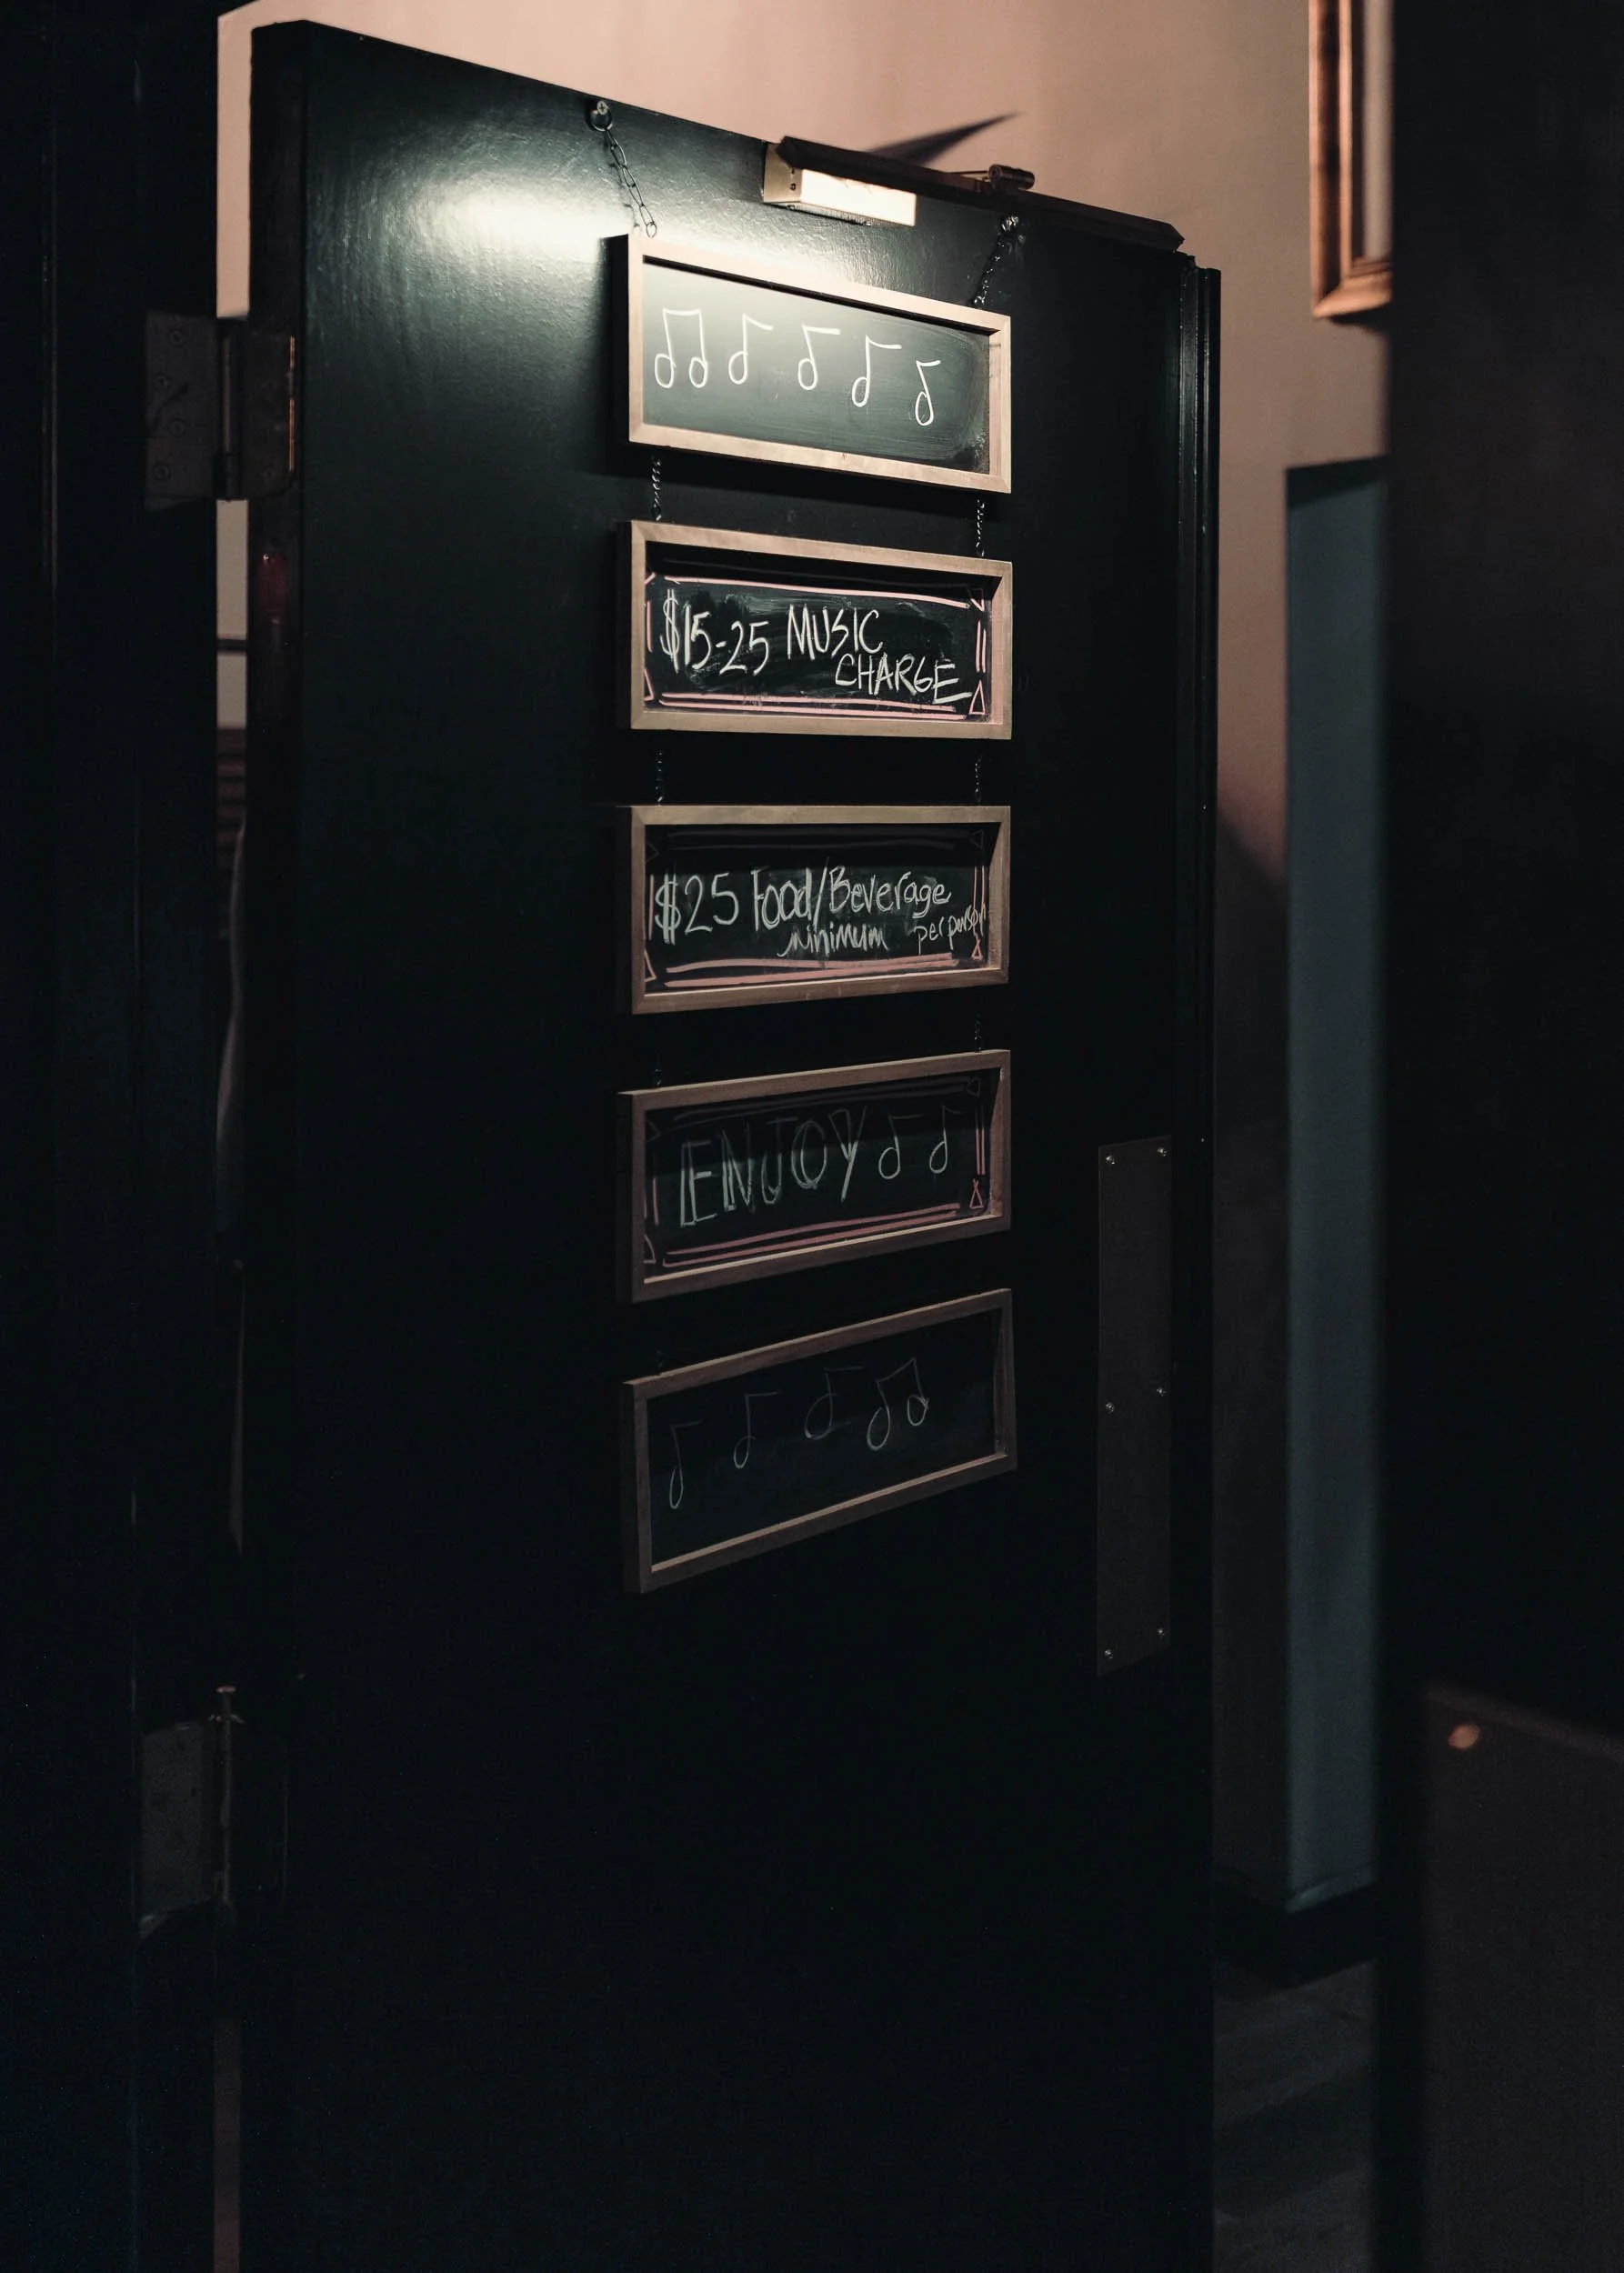 $15-25 MUSIC
CHARGE
$25 Food/Beverage
minimum per person
ENJOY